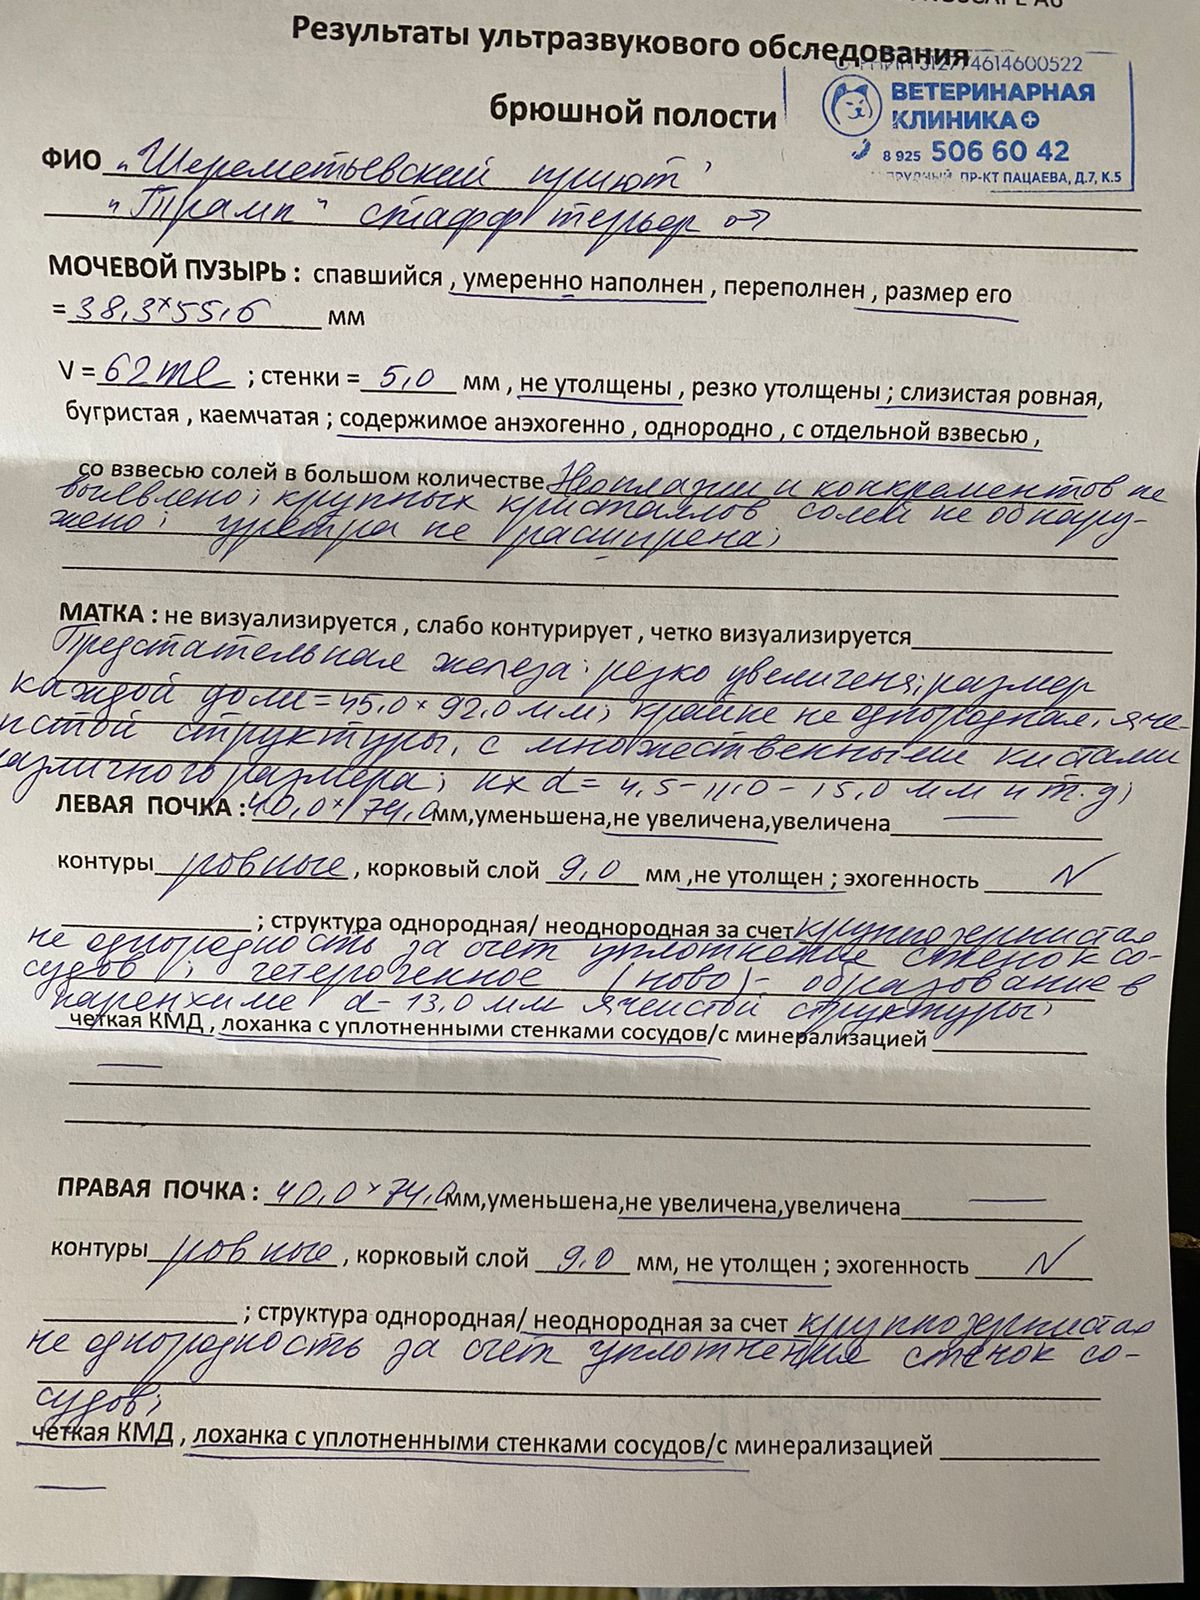 Результаты ультразвукового обследования
брюшной полости
314774614600522
ВЕТЕРИНАРНАЯ
КЛИНИКА
8 925 506 60 42
ПР-КТ ПАЦАЕВА, Д.7, К.5
ФИО „Шереметьевский приют"
„Трамп" стафф терьер ♂
МОЧЕВОЙ ПУЗЫРЬ : спавшийся , умеренно наполнен , переполнен , размер его
= 38,3×55,6 мм
V = 62 ml ; стенки = 5,0 мм , не утолщены , резко утолщены ; слизистая ровная,
бугристая , каемчатая ; содержимое анэхогенно , однородно , с отдельной взвесью ,
со взвесью солей в большом количестве Неоплазии и конкрементов не
выявлено; крупных кристаллов солей не обнару-
жено; уретра не расширена;
МАТКА : не визуализируется , слабо контурирует , четко визуализируется
Предстательная железа: резко увеличена; размер
каждой доли = 45,0 × 92,0 мм; крайне не однородная, яче-
истой структуры, с множественными кистами
различного размера; их d = 4,5 - 11,0 - 15,0 мм и т.д;
ЛЕВАЯ ПОЧКА : 40,0 × 74,0 мм,уменьшена,не увеличена,увеличена —
контуры ровные , корковый слой 9,0 мм ,не утолщен ; эхогенность N
; структура однородная/ неоднородная за счет крупнозернистая
не однородность за счет уплотнение стенок со-
судов ; гетерогенное (ново)- образование в
паренхиме d - 13,0 мм ячеистой структуры;
четкая КМД , лоханка с уплотненными стенками сосудов/с минерализацией
—
ПРАВАЯ ПОЧКА : 40,0 × 74,0 мм,уменьшена,не увеличена,увеличена —
контуры ровные , корковый слой 9,0 мм, не утолщен ; эхогенность N
; структура однородная/ неоднородная за счет крупнозернистая
не однородность за счет уплотнения стенок со-
судов;
четкая КМД , лоханка с уплотненными стенками сосудов/с минерализацией
—